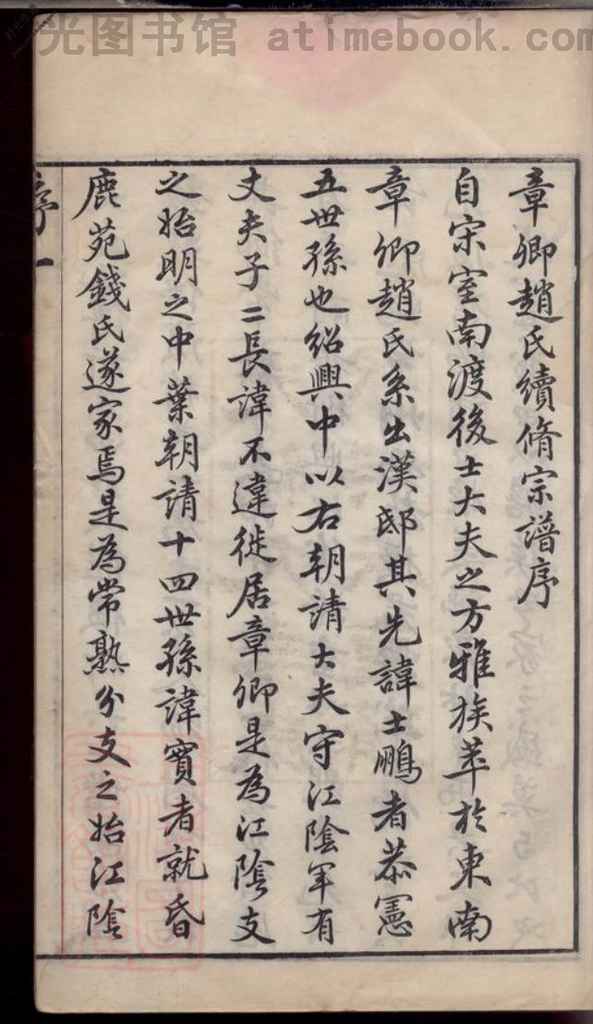 光图书馆 atimebook.com
章卿趙氏續脩宗譜序
自宋室南渡後士大夫之方雅族萃於東南
章卿趙氏系出漢邸其先諱士鵬者恭憲
五世孫也紹興中以右朝請大夫守江陰軍有
丈夫子二長諱不違徙居章卿是為江陰支
之始明之中葉朝請十四世孫諱寳者就昏
鹿苑錢氏遂家焉是為常熟分支之始江陰
序 一